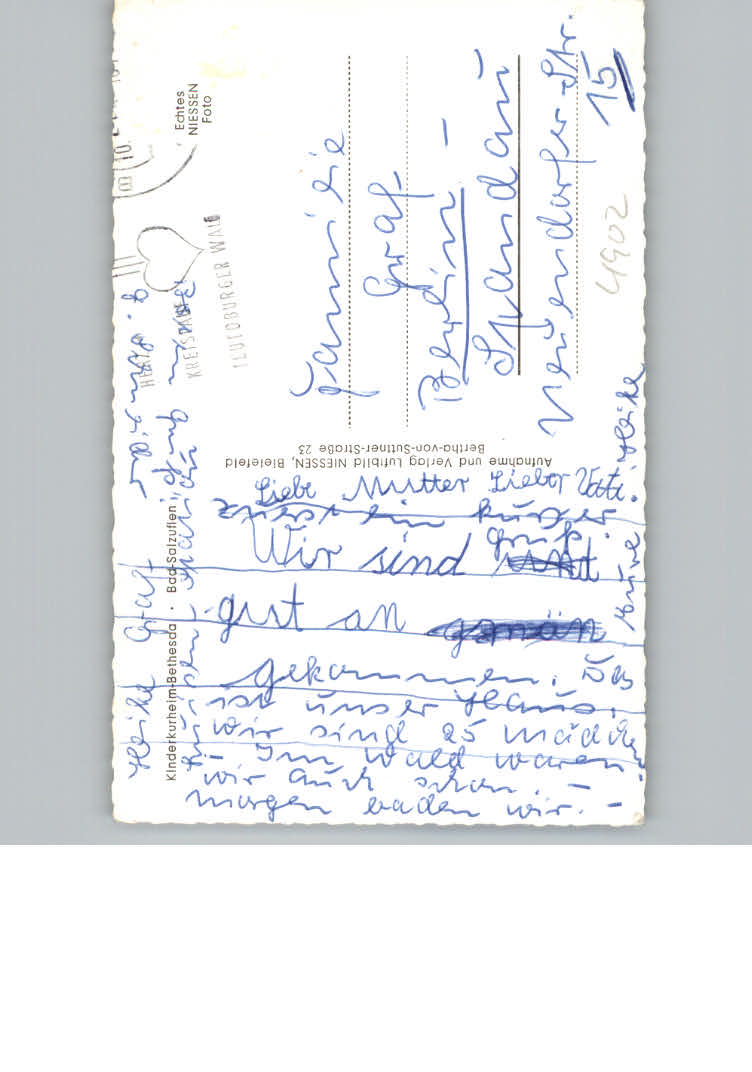 Liebe Mutter Lieber Vati.
zuerst ein kurzer
Gruß.
Wir sind
gut an
gekommen. Das
ist unser Haus.
Wir sind 25 Mädchen
- Im Wald waren
wir auch schon. -
Morgen baden wir. -
Eure Heike
Heike Graf
Kinderkurheim-Bethesda · Bad-Salzuflen
Aufnahme und Verlag Luftbild NIESSEN, Bielefeld
Bertha-von-Suttner-Straße 23
Echtes
NIESSEN
Foto
TEUTOBURGER WALD
Familie
Graf
Berlin -
Spandau
Neuendorfer Str.
15
4902